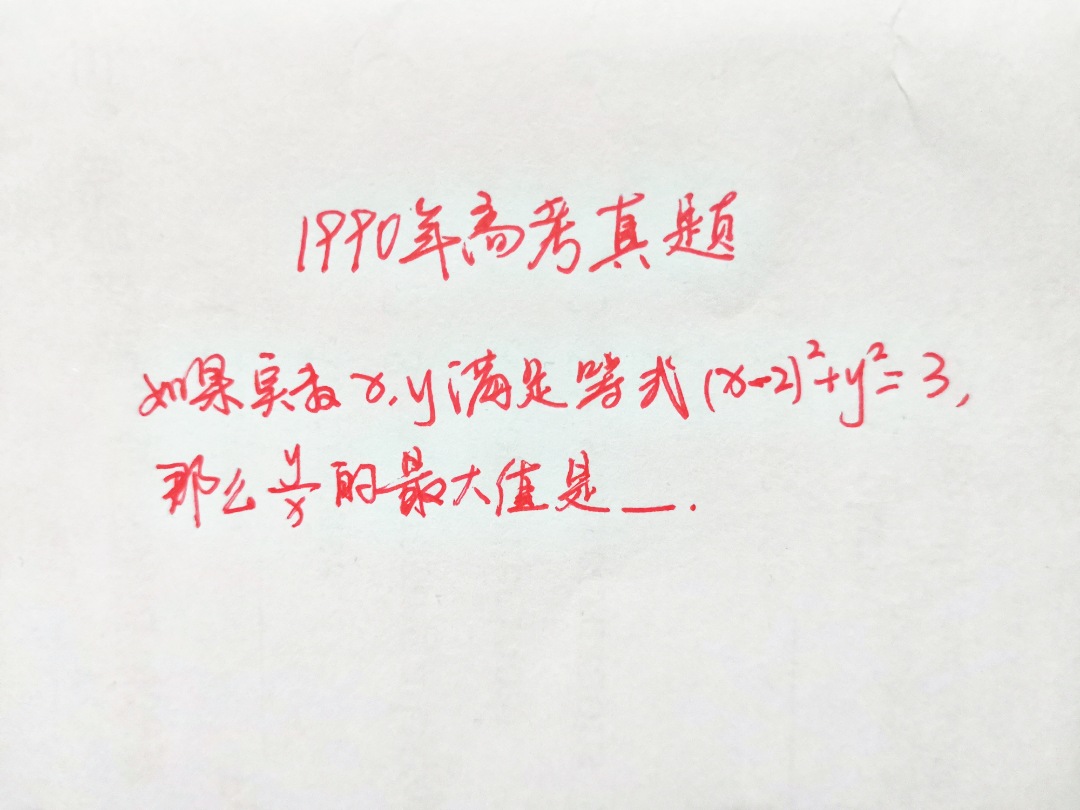 1990年高考真题
如果实数x,y满足等式(x-2)²+y²=3,
那么y/x的最大值是__.